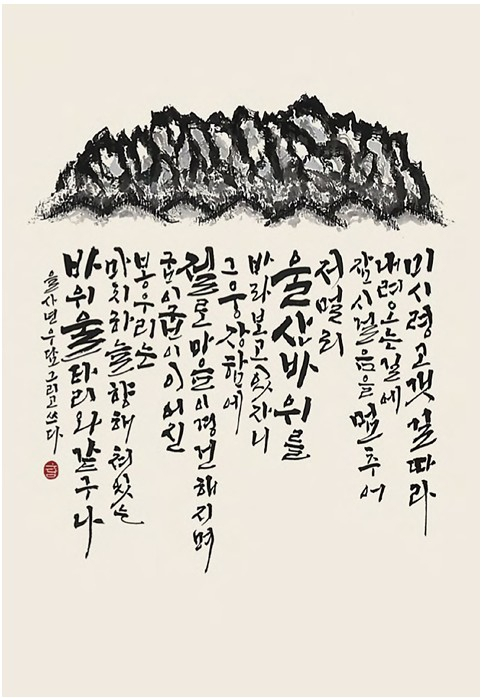 미시령고갯길따라
내려오는길에
잠시걸음을멈추어
저멀리
울산바위를
바라보고있자니
그웅장함에
절로마음이경건해지며
굽이굽이이어진
봉우리는
마치하늘향해쳐있는
바위울타리와같구나
을사년우담그리고쓰다